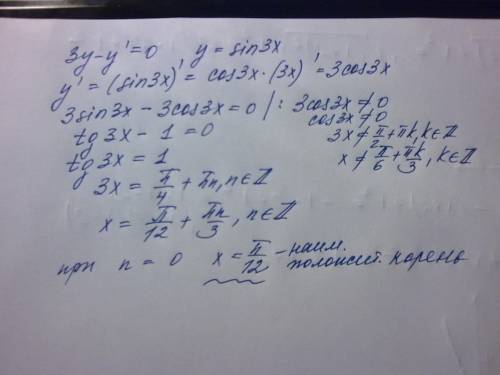 3y-y'=0 y=sin3x
y'=(sin3x)'=cos3x·(3x)'=3cos3x
3sin3x-3cos3x=0 |: 3cos3x≠0
cos3x≠0
tg3x-1=0
3x≠π/2+πk, k∈Z
tg3x=1
x≠π/6+πk/3, k∈Z
3x=π/4+πn, n∈Z
x=π/12+πn/3, n∈Z
при n=0 x=π/12 - наим. положит. корень